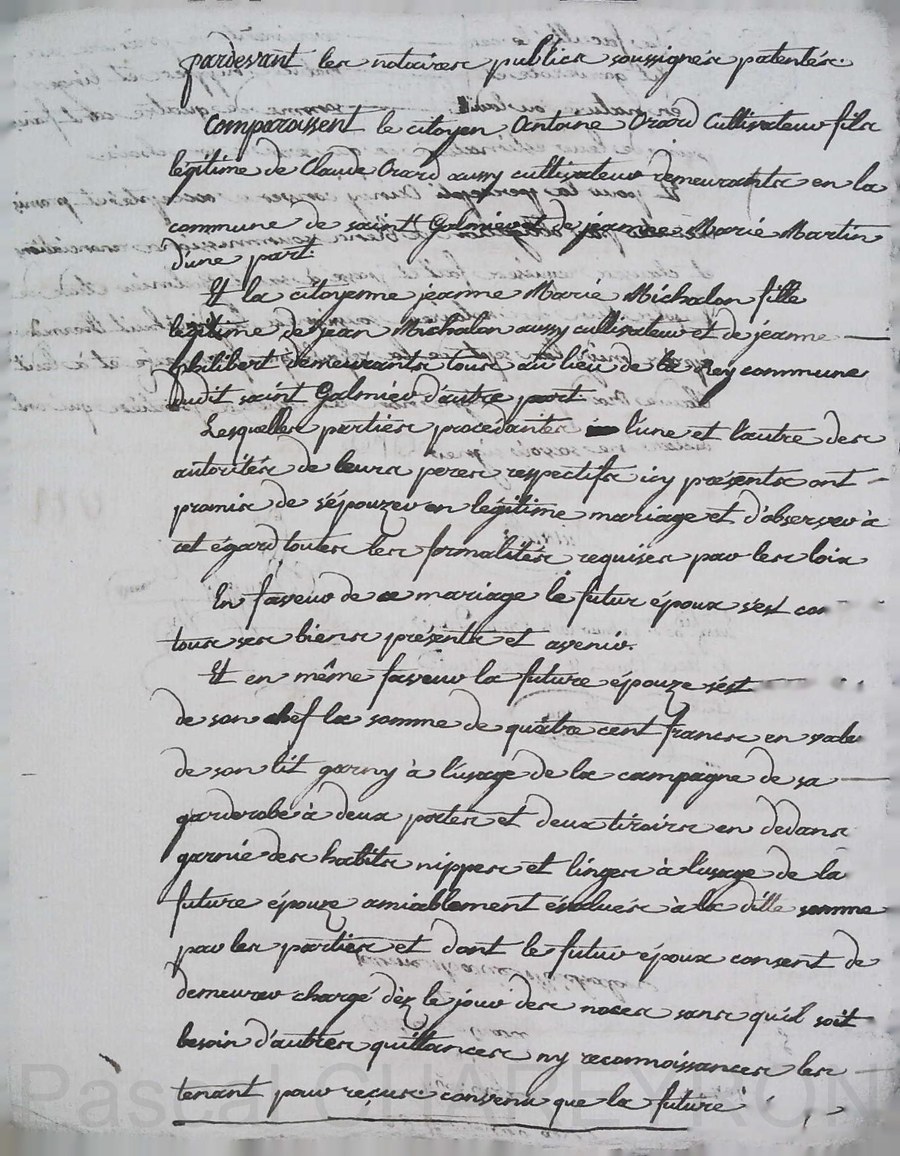 pardevant les notaires publics soussignés patentés
Comparoissent le citoyen Antoine Orard Cultivateur fils
légitime de Claude Orard aussy cultivateur demeurants en la
commune de saint Galmier et de jeanne Marie Martin
d'une part
Et la citoyenne jeanne Marie Michalon fille
légitime de jean Michalon aussy cultivateur et de jeanne
philibert demeurants tous au lieu de Rey commune
dudit saint Galmier d'autre part
Lesquelles parties procedantes l'une et l'autre des
autorités de leurs peres respectifs icy présents ont
promis de s'épouzer en légitime mariage et d'observer à
cet égard toutes les formalités requises par les loix
En faveur de ce mariage le futur époux s'est
tous ses biens présents et avenir.
Et en même faveur la future épouze s'est
de son chef la somme de quatre cent francs en
de son lit garny à l'usage de la campagne de sa
garderobe à deux portes et deux tiroirs en dedans
garnie des habits nippes et linges à l'usage de la
future épouze amiablement évalués à la ditte somme
par les parties et dont le futur époux consent de
demeurer chargé dèz le jour des noces sans qu'il soit
besoin d'autres quittances ny reconnoissances les
tenant pour reçus convenu que la future
Pascal CHAPEYRON